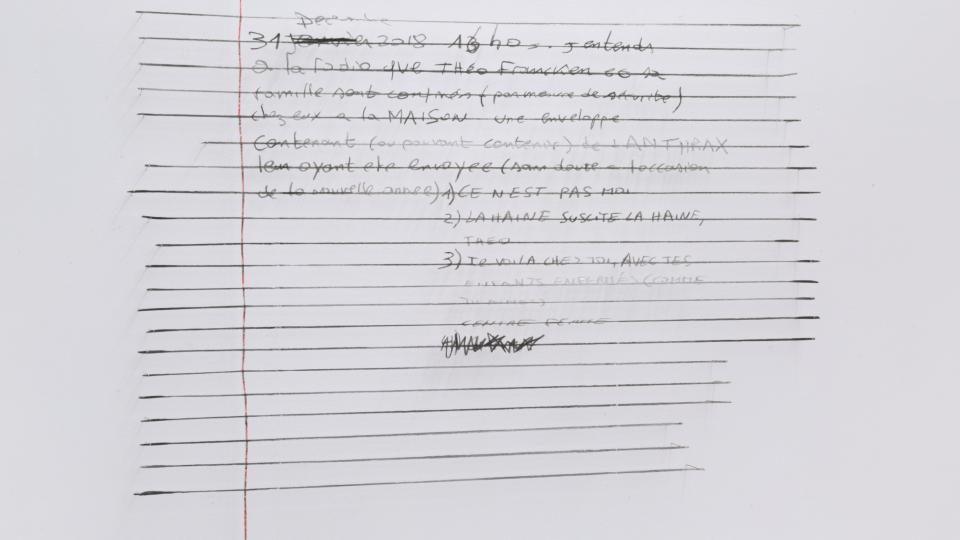 Decembre
31 Janvier 2018 13h40 ... j entends
a la radio que THéo Francken et sa
famille sont confinés (par mesure de sécurité)
chez eux a la MAISON une enveloppe
contenant (ou pouvant contenir) de L'ANTHRAX
leur ayant ete envoyee (sans doute a l'occasion
de la nouvelle annee) 1) CE N'EST PAS MOI
2) LA HAINE SUSCITE LA HAINE,
THEO
3) TE VOILA CHEZ TOI, AVEC TES
ENFANTS ENFERMÉS (COMME
CENTRE FERMÉ